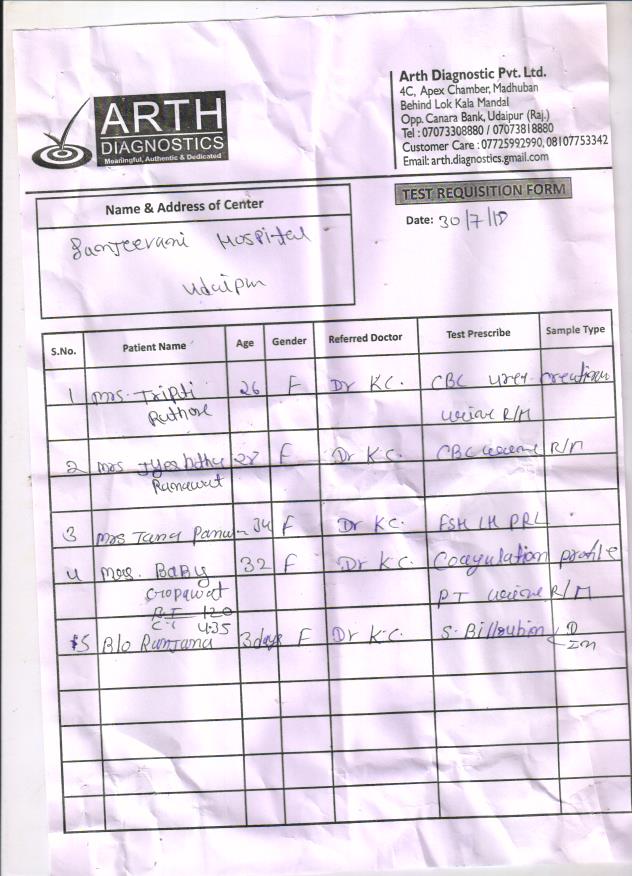 ARTH
DIAGNOSTICS
Meaningful, Authentic & Dedicated
Arth Diagnostic Pvt. Ltd.
4C, Apex Chamber, Madhuban
Behind Lok Kala Mandal
Opp. Canara Bank, Udaipur (Raj.)
Tel : 07073308880 / 07073818880
Customer Care : 07725992990, 08107753342
Email: arth.diagnostics.gmail.com
TEST REQUISITION FORM
Date: 30/7/18
Name & Address of Center
Sanjeevani Hospital
Udaipur
S.No. Patient Name Age Gender Referred Doctor Test Prescribe Sample Type
1 Mrs. Tripti 26 F Dr K.C. CBC urea creatinin
Rathore urine R/M
2 Mrs 27 F Dr K.C. CBC urine R/M
Ranawat
3 Mrs Tana Panwar 34 F Dr K.C. FSH LH PRL
4 Mrs. Baby 32 F Dr K.C. Coagulation profile
PT urine R/M
B.T 1.20
C.T 4.35
5 B/o Ranjana 3days F Dr K.C. S. Billrubin D
In